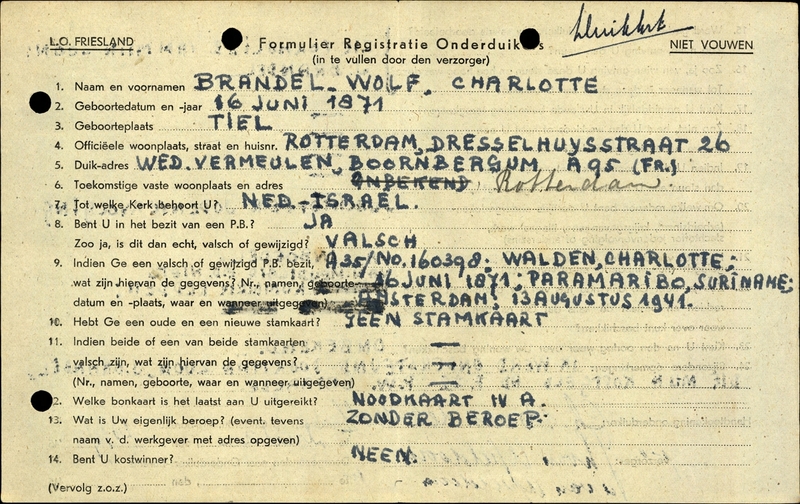 L.O. FRIESLAND
Formulier Registratie Onderduikers
NIET VOUWEN
(in te vullen door den verzorger)
1. Naam en voornamen BRANDEL-WOLF, CHARLOTTE
2. Geboortedatum en -jaar 16 JUNI 1871
3. Geboorteplaats TIEL
4. Officiëele woonplaats, straat en huisnr. ROTTERDAM, DRESSELHUYSSTRAAT 26
5. Duik-adres WED. VERMEULEN, BOORNBERGUM A95 (FR.)
6. Toekomstige vaste woonplaats en adres ONBEKEND, Rotterdam.
7. Tot welke Kerk behoort U? NED.-ISRAEL.
8. Bent U in het bezit van een P.B.? JA
Zoo ja, is dit dan echt, valsch of gewijzigd? VALSCH
9. Indien Ge een valsch of gewijzigd P.B. bezit, A35/No. 160398; WALDEN, CHARLOTTE;
wat zijn hiervan de gegevens? Nr., namen, geboorte- 16 JUNI 1871; PARAMARIBO, SURINAME;
datum en -plaats, waar en wanneer uitgegeven) AMSTERDAM, 13 AUGUSTUS 1941.
10. Hebt Ge een oude en een nieuwe stamkaart? GEEN STAMKAART
11. Indien beide of een van beide stamkaarten —
valsch zijn, wat zijn hiervan de gegevens? —
(Nr., namen, geboorte, waar en wanneer uitgegeven) —
12. Welke bonkaart is het laatst aan U uitgereikt? NOODKAART IV A.
13. Wat is Uw eigenlijk beroep? (event. tevens ZONDER BEROEP.
naam v. d. werkgever met adres opgeven)
14. Bent U kostwinner? NEEN.
(Vervolg z.o.z.)